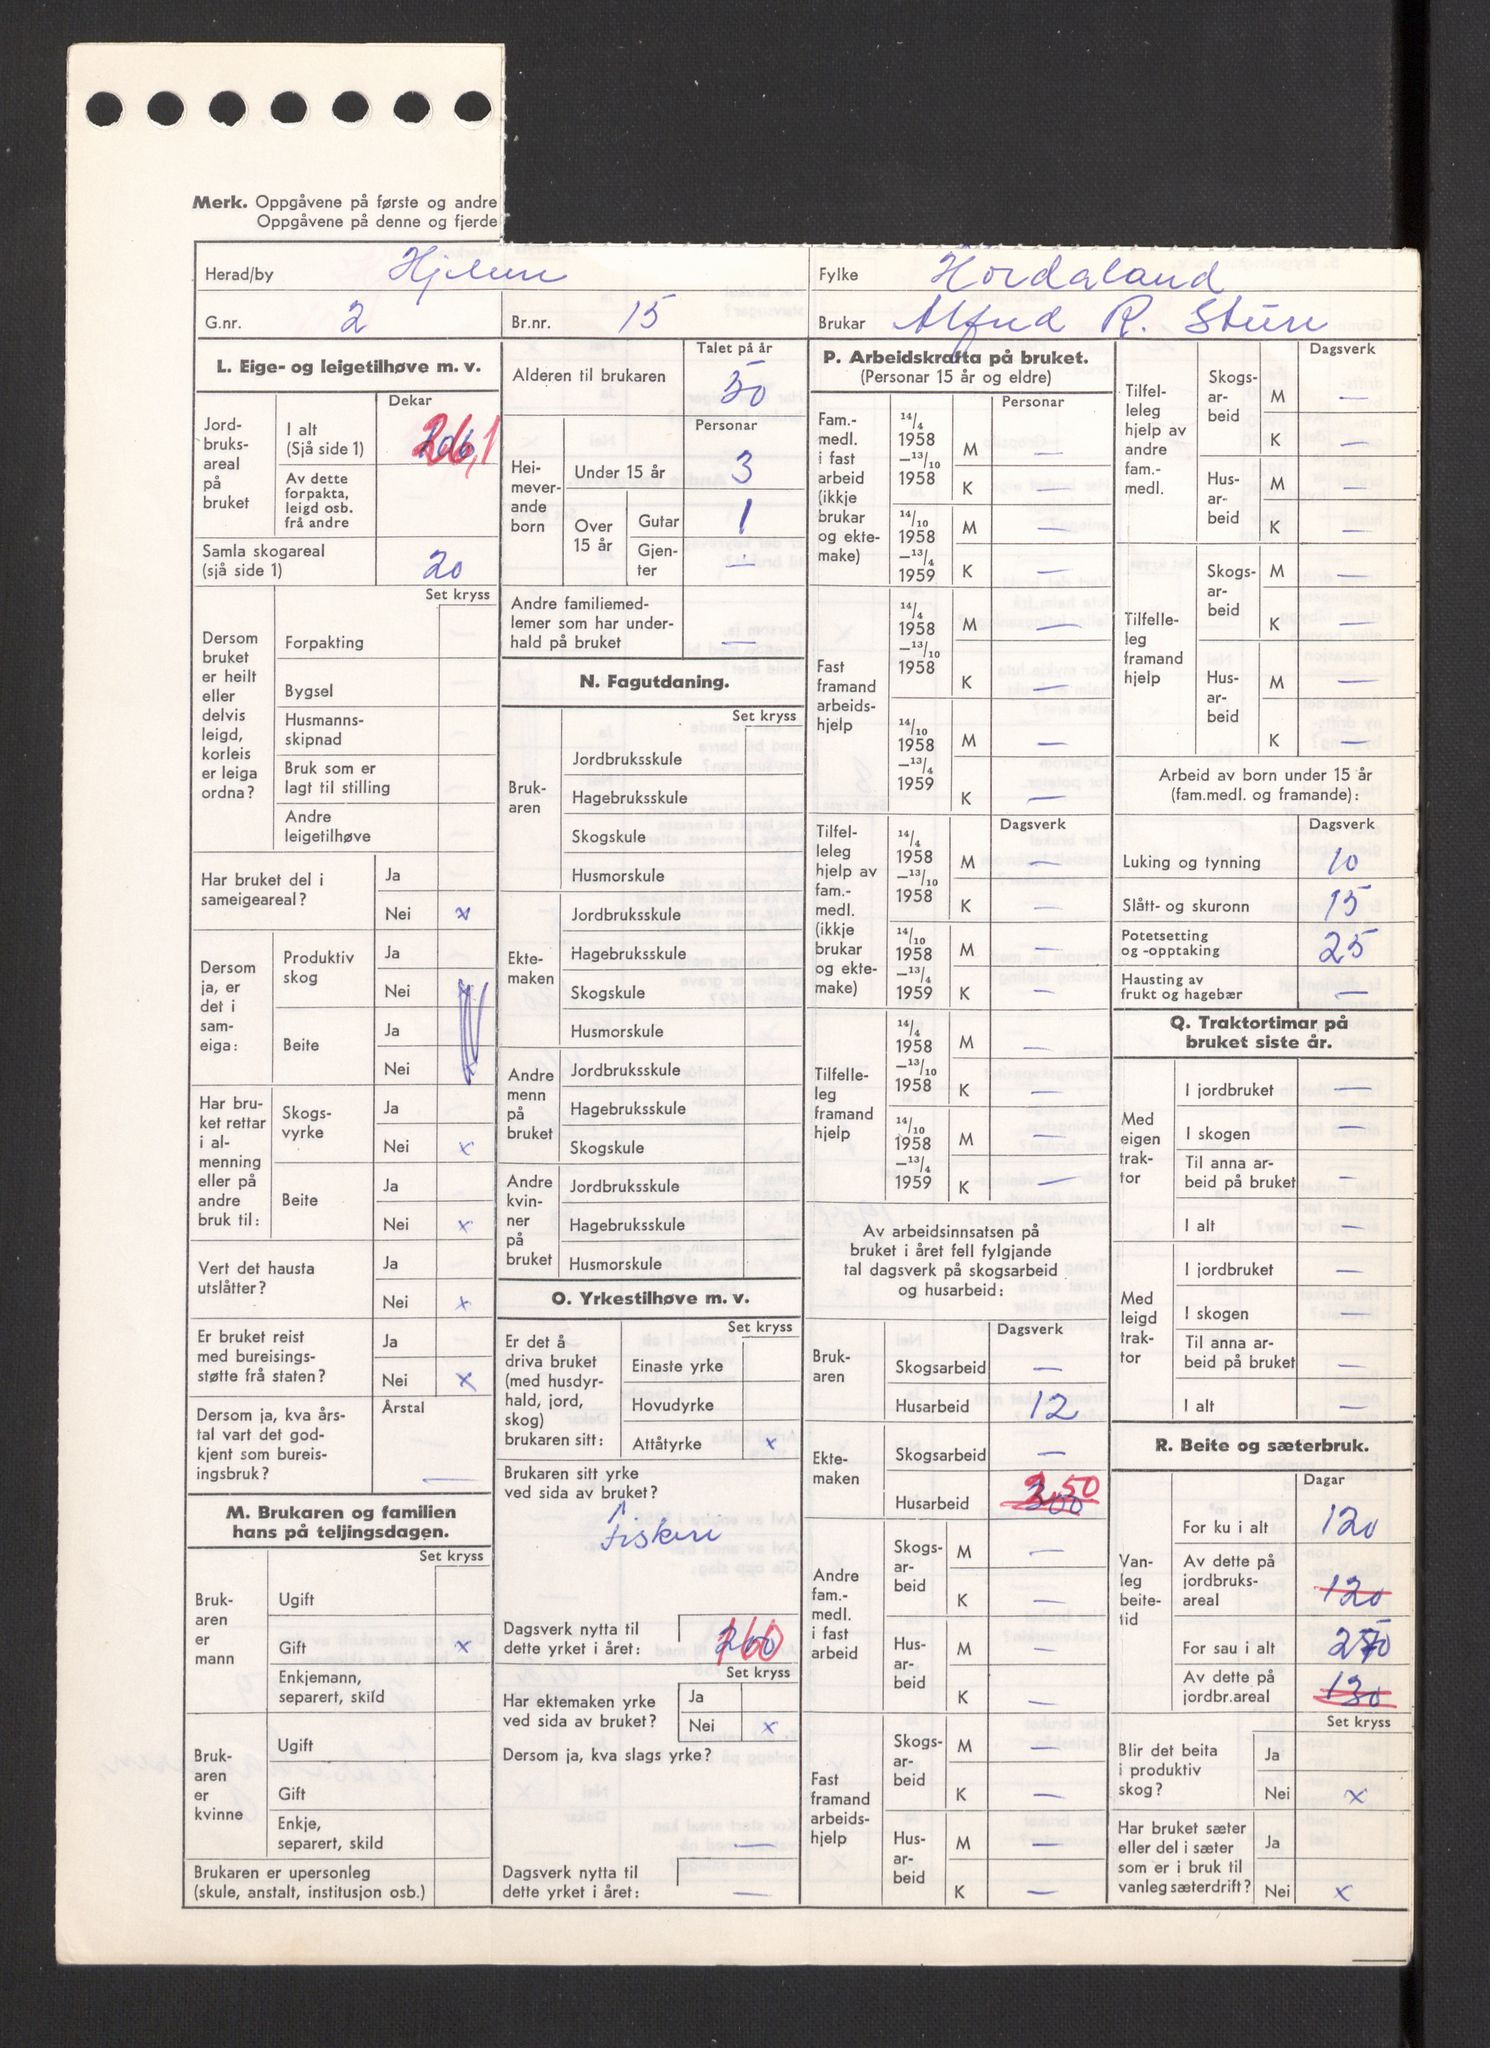 Merk. Oppgåvene på første og andre
Oppgåvene på denne og fjerde
Herad/by Hjelme
Fylke Hordaland
G.nr. 2
Br.nr. 15
Brukar Alfred R. Sture
L. Eige- og leigetilhøve m. v.
Dekar
Jord-
bruks-
areal
på
bruket
I alt
(Sjå side 1) 26,1
Av dette
forpakta,
leigd osb.
frå andre
Samla skogareal
(sjå side 1) 20
Set kryss
Dersom
bruket
er heilt
eller
delvis
leigd,
korleis
er leiga
ordna?
Forpakting
Bygsel
Husmanns-
skipnad
Bruk som er
lagt til stilling
Andre
leigetilhøve
Har bruket del i
sameigeareal?
Ja
Nei x
Dersom
ja, er
det i
sam-
eiga:
Produktiv
skog
Ja
Nei x
Beite
Ja
Nei x
Har bru-
ket rettar
i al-
menning
eller på
andre
bruk til:
Skogs-
vyrke
Ja
Nei x
Beite
Ja
Nei x
Vert det hausta
utslåtter?
Ja
Nei x
Er bruket reist
med bureisings-
støtte frå staten?
Ja
Nei x
Dersom ja, kva års-
tal vart det god-
kjent som bureis-
ingsbruk?
Årstal
—
M. Brukaren og familien
hans på teljingsdagen.
Set kryss
Bruk-
aren
er
mann
Ugift
Gift x
Enkjemann,
separert, skild
Bruk-
aren
er
kvinne
Ugift
Gift
Enkje,
separert, skild
Brukaren er upersonleg
(skule, anstalt, institusjon osb.)
Talet på år
Alderen til brukaren 50
Personar
Hei-
mever-
ande
born
Under 15 år 3
Over
15 år
Gutar 1
Gjen-
ter —
Andre familiemed-
lemer som har under-
hald på bruket —
N. Fagutdaning.
Set kryss
Bruk-
aren
Jordbruksskule
Hagebruksskule
Skogskule
Husmorskule
Ekte-
maken
Jordbruksskule
Hagebruksskule
Skogskule
Husmorskule
Andre
menn
på
bruket
Jordbruksskule
Hagebruksskule
Skogskule
Andre
kvin-
ner
på
bruket
Jordbruksskule
Hagebruksskule
Husmorskule
O. Yrkestilhøve m. v.
Set kryss
Er det å
driva bruket
(med husdyr-
hald, jord,
skog)
brukaren sitt:
Einaste yrke
Hovudyrke
Attåtyrke x
Brukaren sitt yrke
ved sida av bruket?
Fiskeri
Dagsverk nytta til
dette yrket i året: 160
Set kryss
Har ektemaken yrke
ved sida av bruket?
Ja
Nei x
Dersom ja, kva slags yrke?
—
Dagsverk nytta til
dette yrket i året: —
P. Arbeidskrafta på bruket.
(Personar 15 år og eldre)
Personar
Fam.-
medl.
i fast
arbeid
(ikkje
brukar
og ekte-
make)
14/4
1958
—13/10
1958
M —
K —
14/10
1958
—13/4
1959
M —
K —
Fast
framand
arbeids-
hjelp
14/4
1958
—13/10
1958
M —
K —
14/10
1958
—13/4
1959
M —
K —
Dagsverk
Tilfel-
leleg
hjelp av
fam.-
medl.
(ikkje
brukar
og ekte-
make)
14/4
1958
—13/10
1958
M —
K —
14/10
1958
—13/4
1959
M —
K —
Tilfelle-
leg
framand
hjelp
14/4
1958
—13/10
1958
M —
K —
14/10
1958
—13/4
1959
M —
K —
Av arbeidsinnsatsen på
bruket i året fell fylgjande
tal dagsverk på skogsarbeid
og husarbeid:
Dagsverk
Bruk-
aren
Skogsarbeid —
Husarbeid 12
Ekte-
maken
Skogsarbeid —
Husarbeid 300 50
Andre
fam.-
medl.
i fast
arbeid
Skogs-
ar-
beid
M —
K —
Hus-
ar-
beid
M —
K —
Fast
framand
arbeids-
hjelp
Skogs-
ar-
beid
M —
K —
Hus-
ar-
beid
M —
K —
Dagsverk
Tilfel-
leleg
hjelp av
andre
fam.-
medl.
Skogs-
ar-
beid
M —
K —
Hus-
ar-
beid
M —
K —
Tilfelle-
leg
framand
hjelp
Skogs-
ar-
beid
M —
K —
Hus-
ar-
beid
M —
K —
Arbeid av born under 15 år
(fam.medl. og framande):
Dagsverk
Luking og tynning 10
Slått- og skuronn 15
Potetsetting
og -opptaking 25
Hausting av
frukt og hagebær —
Q. Traktortimar på
bruket siste år.
Med
eigen
trak-
tor
I jordbruket —
I skogen —
Til anna ar-
beid på bruket —
I alt —
Med
leigd
trak-
tor
I jordbruket —
I skogen —
Til anna ar-
beid på bruket —
I alt —
R. Beite og sæterbruk.
Dagar
Van-
leg
beite-
tid
For ku i alt 120
Av dette på
jordbruks-
areal 120
For sau i alt
Av dette på
jordbr.areal 130
Set kryss
Blir det beita
i produktiv
skog?
Ja
Nei x
Har bruket sæter
eller del i sæter
som er i bruk til
vanleg sæterdrift?
Ja
Nei x